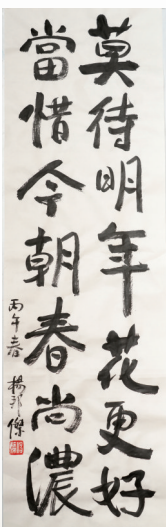 莫待明年花更好
當惜今朝春尚濃
丙午春 楊邦傑